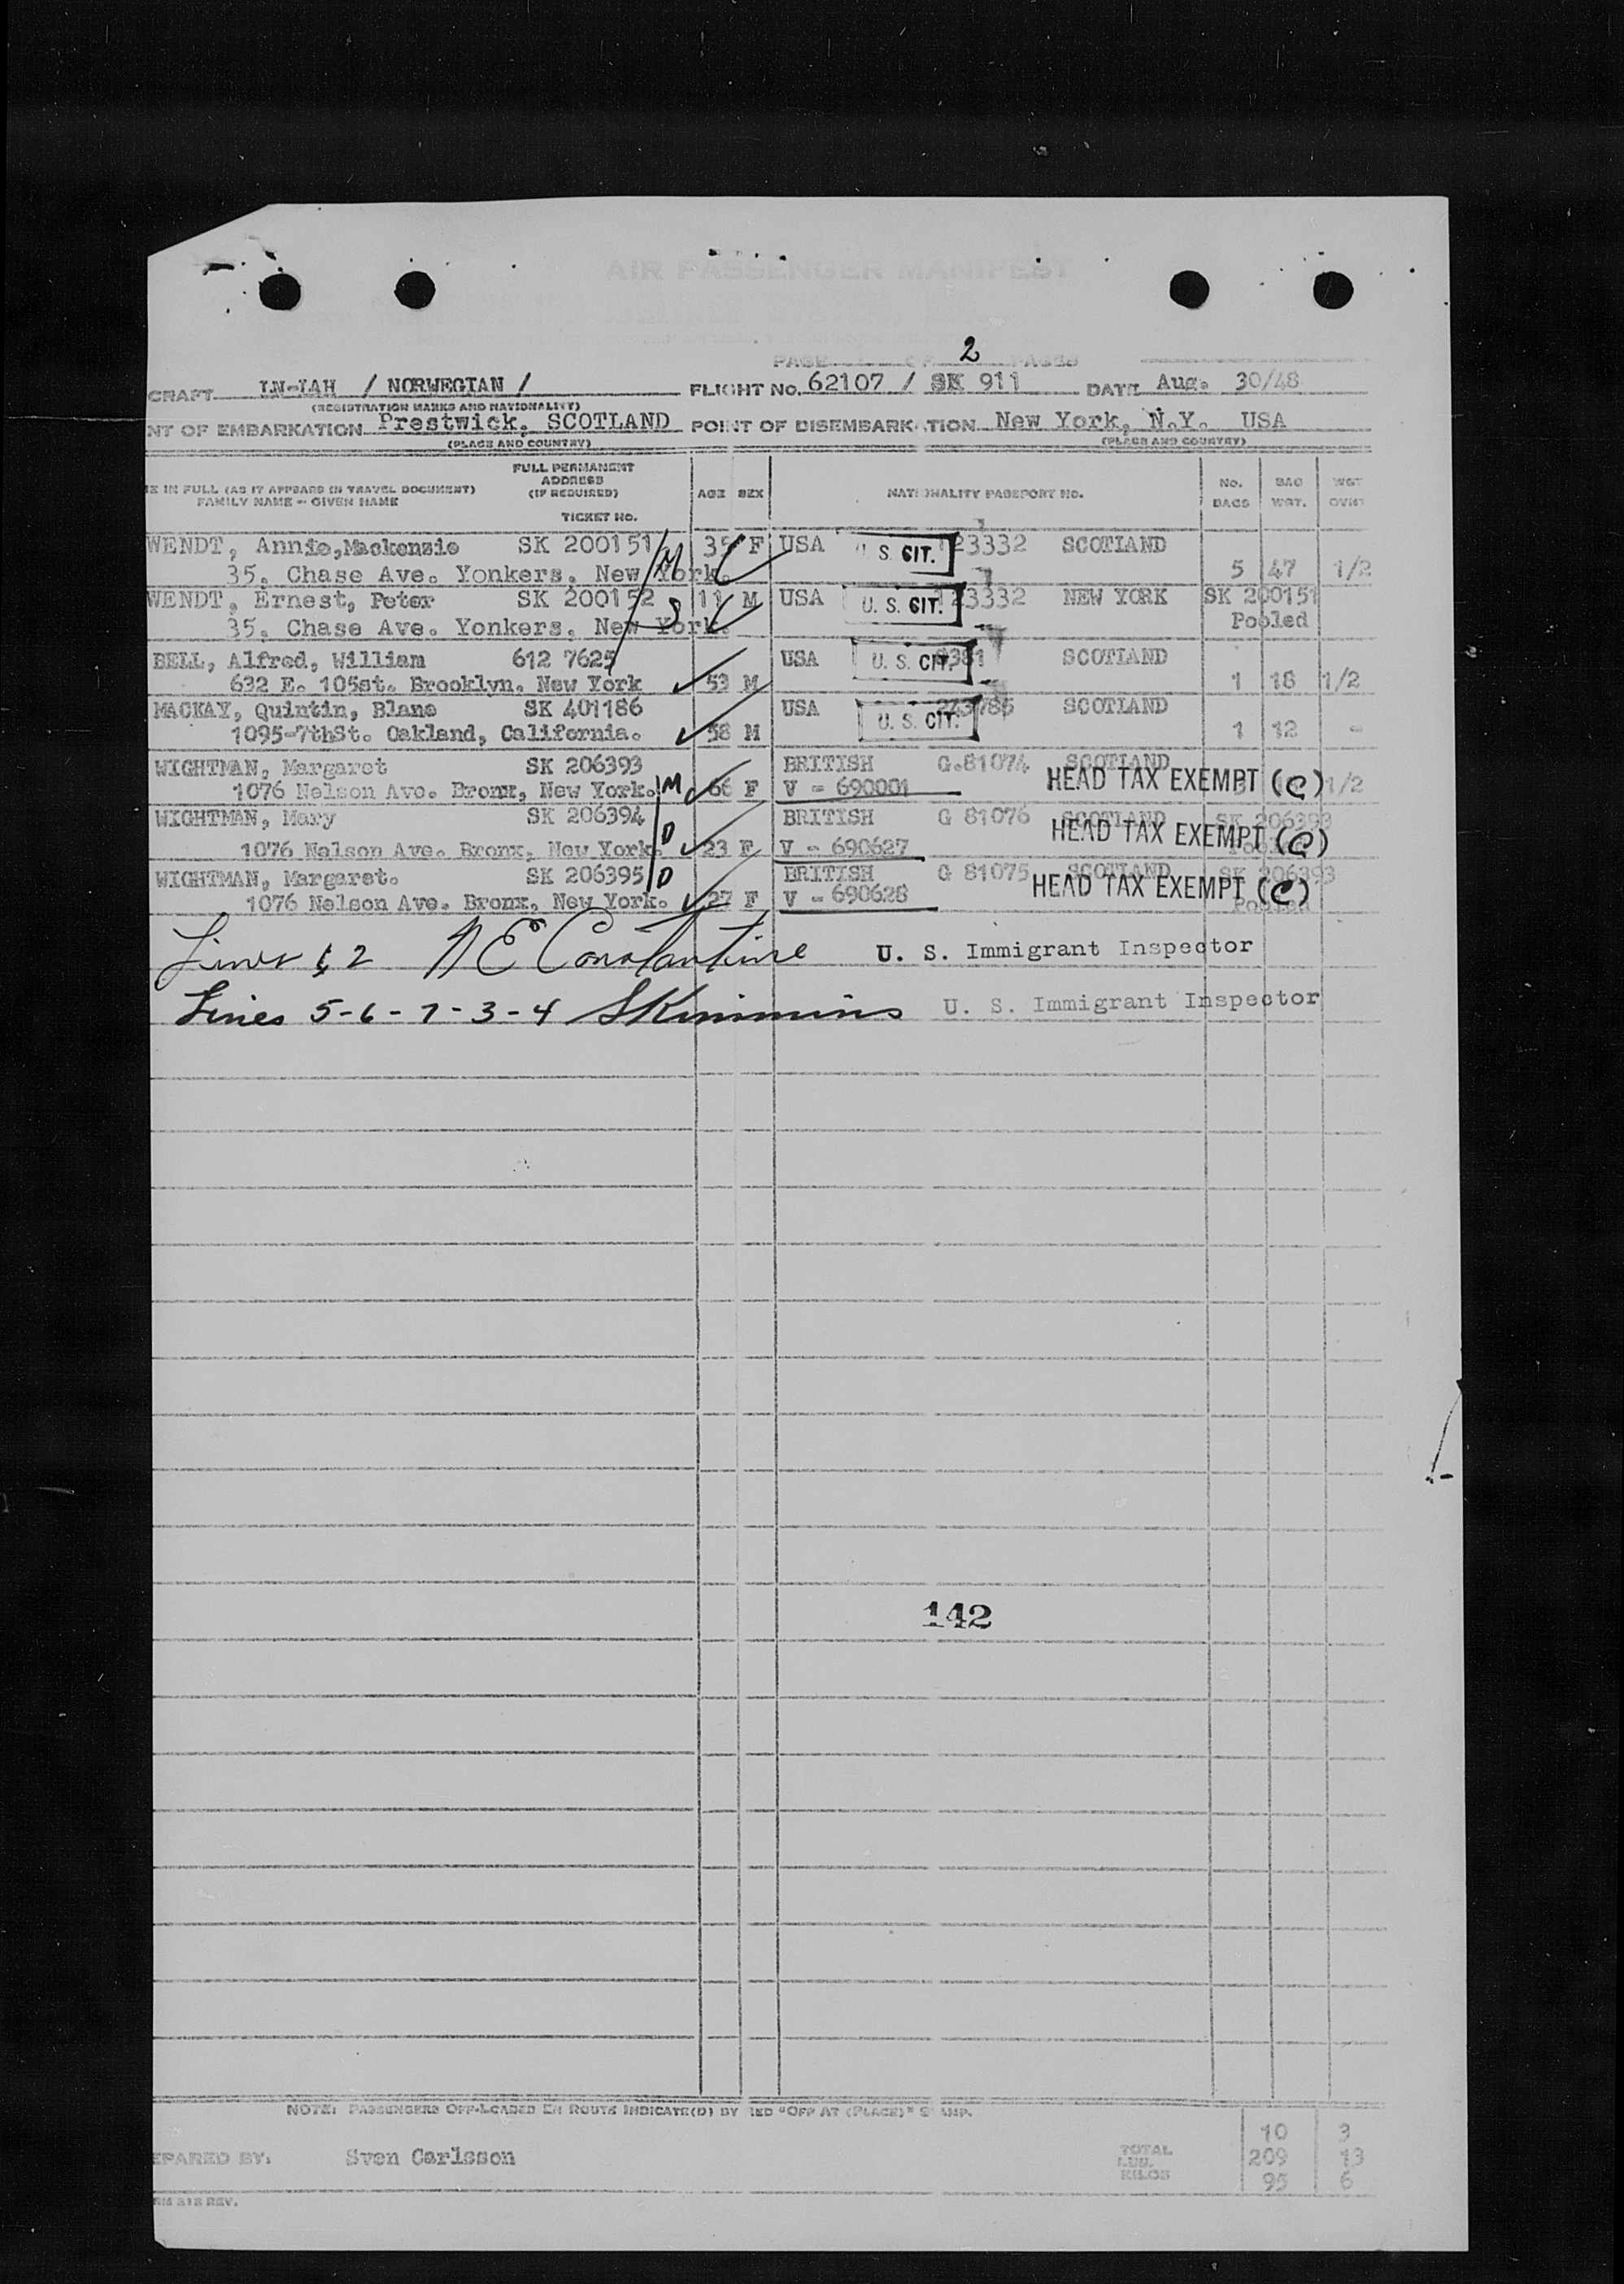 AIR PASSENGER MANIFEST
PAGE OF 2 PAGES
CRAFT LN-IAH / NORWEGIAN / FLIGHT NO. 62107 / SK 911 DATE Aug. 30/48
(REGISTRATION MARKS AND NATIONALITY)
NT OF EMBARKATION Prestwick, SCOTLAND POINT OF DISEMBARKATION New York, N.Y. USA
(PLACE AND COUNTRY) (PLACE AND COUNTRY)
E IN FULL (AS IT APPEARS IN TRAVEL DOCUMENT) FAMILY NAME - GIVEN NAME
FULL PERMANENT ADDRESS (IF REQUIRED) TICKET NO.
AGE SEX NATIONALITY PASSPORT NO. NO. BAGS BAG WGT. WGT OVHT
WENDT, Annie, Mackenzie SK 200151 M 35 F USA U. S. CIT. 23332 SCOTLAND
35, Chase Ave. Yonkers, New York. 5 47 1/2
WENDT, Ernest, Peter SK 200152 11 M USA U. S. CIT. 23332 NEW YORK SK 200151
35, Chase Ave. Yonkers, New York. S Pooled
BELL, Alfred, William 612 7625 USA U. S. CIT. 381 SCOTLAND
632 E. 105st. Brooklyn. New York 53 M 1 18 1/2
MACKAY, Quintin, Blane SK 401186 USA U. S. CIT. SCOTLAND
1095-7thSt. Oakland, California. 58 M 1 12 -
WIGHTMAN, Margaret SK 206393 BRITISH G.81074 SCOTLAND
1076 Nelson Ave. Bronx, New York. M 66 F V - 690001 HEAD TAX EXEMPT (C) 1/2
WIGHTMAN, Mary SK 206394 BRITISH G 81076 SCOTLAND SK 206393
1076 Nelson Ave. Bronx, New York. D 23 F V - 690627 HEAD TAX EXEMPT (C)
WIGHTMAN, Margaret. SK 206395 D BRITISH G 81075 SCOTLAND SK 206393
1076 Nelson Ave. Bronx, New York. 27 F V - 690628 HEAD TAX EXEMPT (C) Pooled
Lines 1, 2 N E Constantine U. S. Immigrant Inspector
Lines 5-6-7-3-4 S Kimmins U. S. Immigrant Inspector
142
NOTE: PASSENGERS OFF-LOADED EN ROUTE INDICATE(D) BY "OFF AT (PLACE)" STAMP.
10 3
EPARED BY: Sven Carlsson TOTAL LBS. 209 13
KILOS 95 6
RM 318 REV.